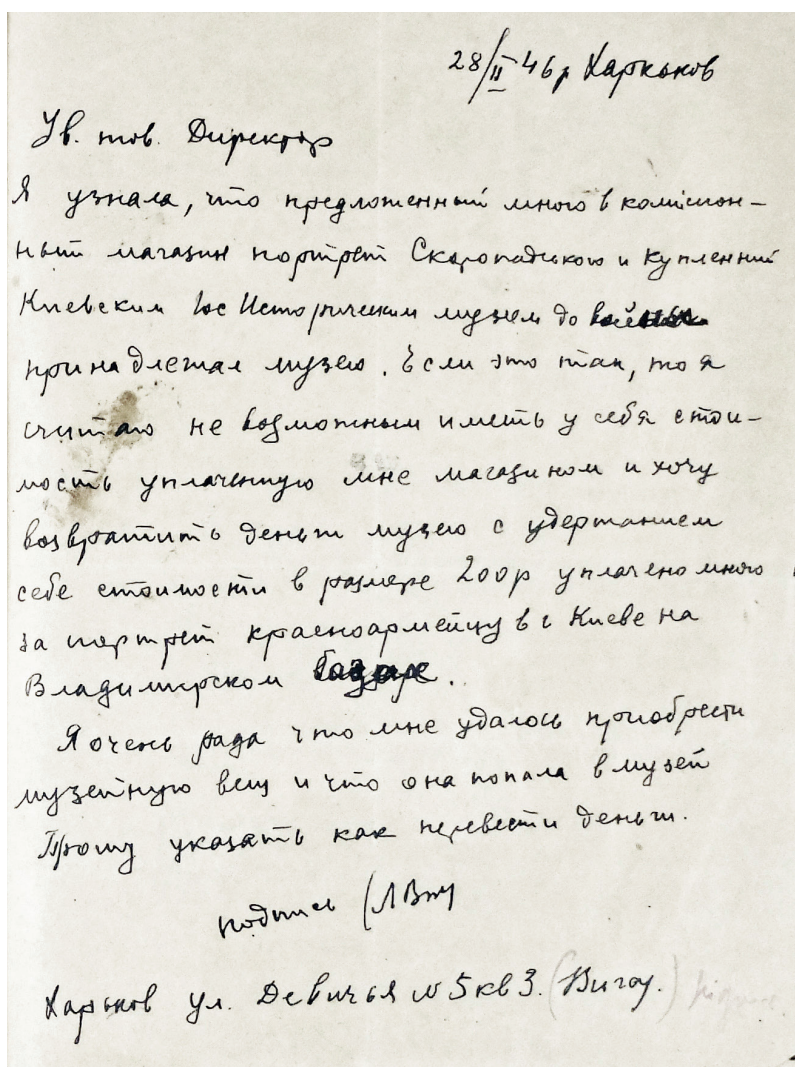 28/II 46р Харьков
Ув. тов. Директор
Я узнала, что предложенный мною в комисион-
ный магазин портрет Скоропадського и купленний
Киевским Гос Историческим музеем до войны
принадлежал музею. Если это так, то я
считаю не возможным иметь у себя стои-
мость уплаченную мне магазином и хочу
возвратить деньги музею с удержанием
себе стоимости в размере 200р уплачено мною
за портрет красноармейцу в г Киеве на
Владимирском базаре.
Я очень рада что мне удалось приобрести
музейную вещ и что она попала в музей
Прошу указать как перевести деньги.
подпись
Харьков ул. Девичья № 5 кв 3.